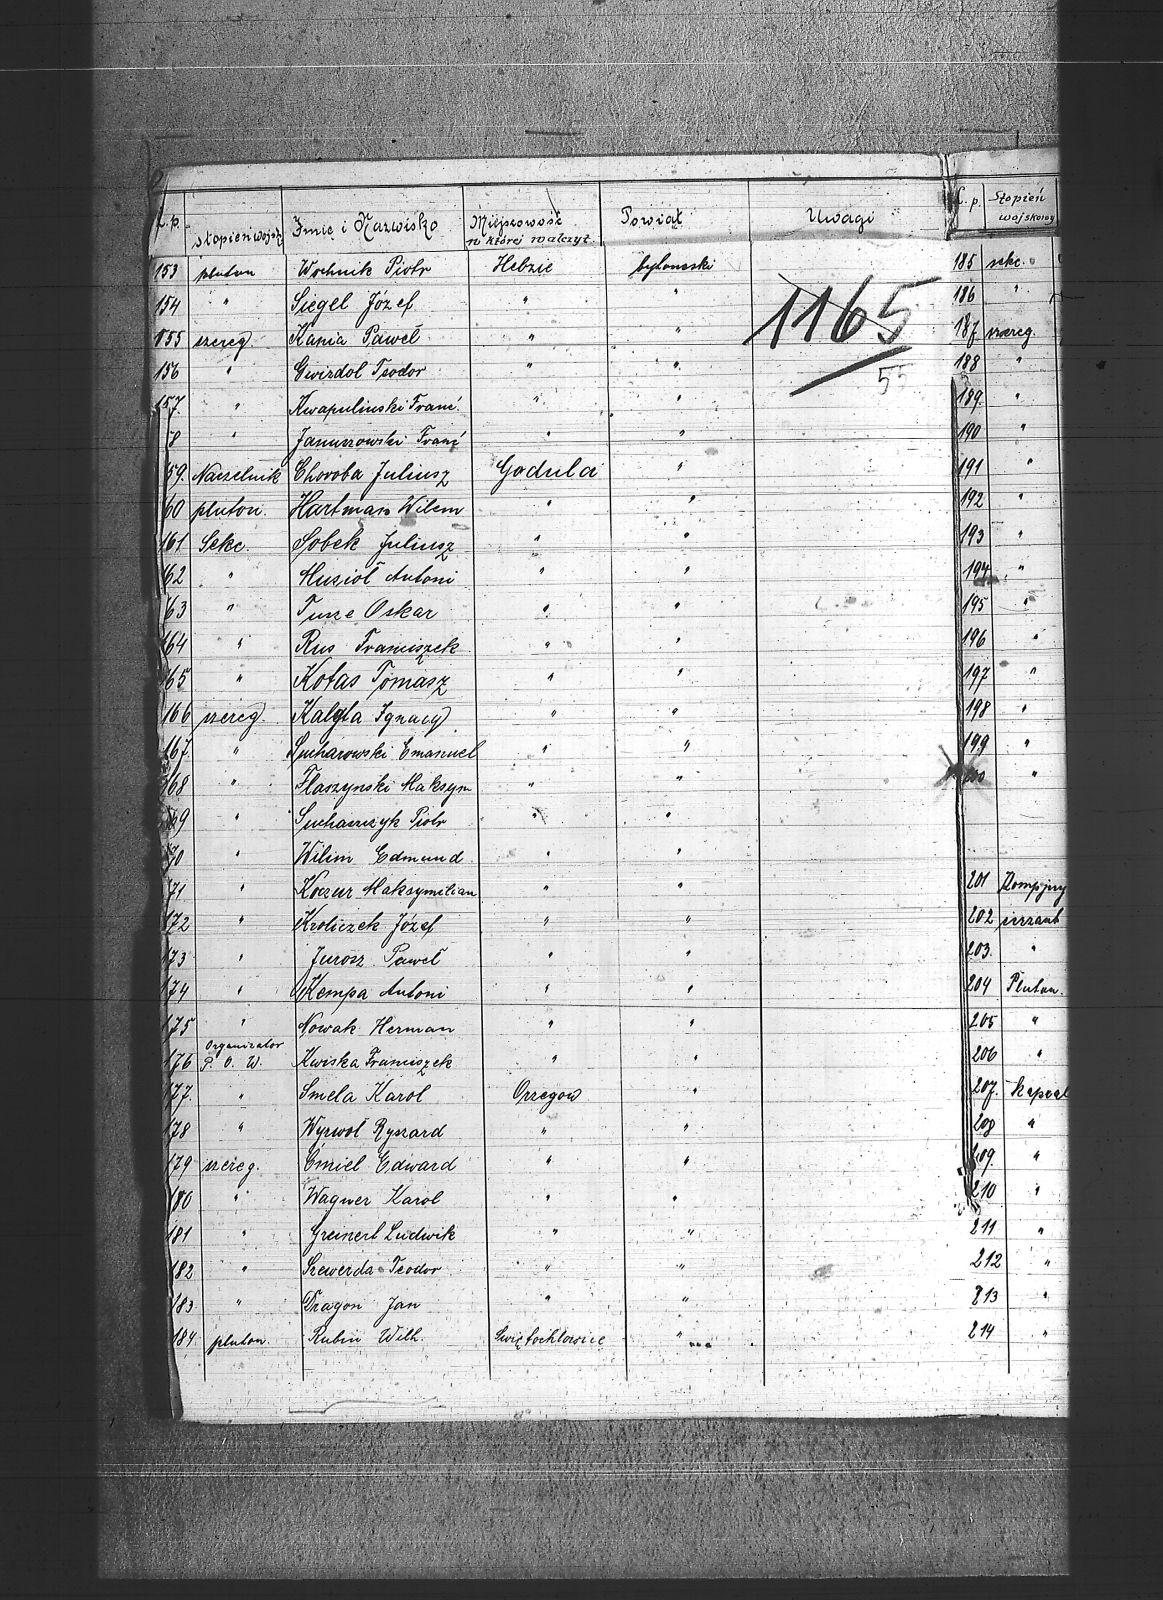 L.p. Stopień wojsk. Imię i Nazwisko Miejscowość w której walczył Powiat Uwagi
153 pluton Wochnik Piotr Hebzie bytomski
154 " Siegel Józef " "
155 szereg. Kania Paweł " "
156 " Gwizdol Teodor " "
157 " Kwapulinski Franc. " "
8 " Januszowski Franc " "
59. Naczelnik Choroba Juliusz Godula "
60 pluton. Hartman Wilem " "
161 Sekc. Sobek Juliusz " "
62 " Musioł Antoni " "
63 " Tusze Oskar " "
164 " Rus Franciszek " "
65 " Kotas Tomasz " "
166 szereg. Kalyta Ignacy " "
167. " Sucharowski Emanuel " "
168 " Flaszynski Maksym " "
69 " Suchaszczyk Piotr " "
70 " Wilim Edmund " "
71 " Koczur Maksymilian " "
172 " Kroliczek Józef " "
173 " Jurosz Paweł " "
174 " Kempa Antoni " "
175 " Nowak Herman " "
176 Organizator P. O. W. Kwiska Franciszek " "
177. " Smela Karol Orzegow "
178 " Wyrwoł Ryszard " "
179 szereg. Cmiel Edward " "
180 " Wagner Karol " "
181 " Greinert Ludwik " "
182 " Szewerda Teodor " "
183 " Dragon Jan " "
184 pluton. Rubin Wilh. Swiętochłowice "
1165
55
L. p. Stopień wojskowy
185 sekc.
186 "
187 szereg.
188 "
189. "
190 "
191 "
192 "
193 "
194 "
195 "
196 "
197 "
198 "
199 "
"
201
202 sierzant
203. "
204 Pluton.
205 "
206 "
207. kapral
208 "
209. "
210 "
211 "
212 "
213 "
214 "